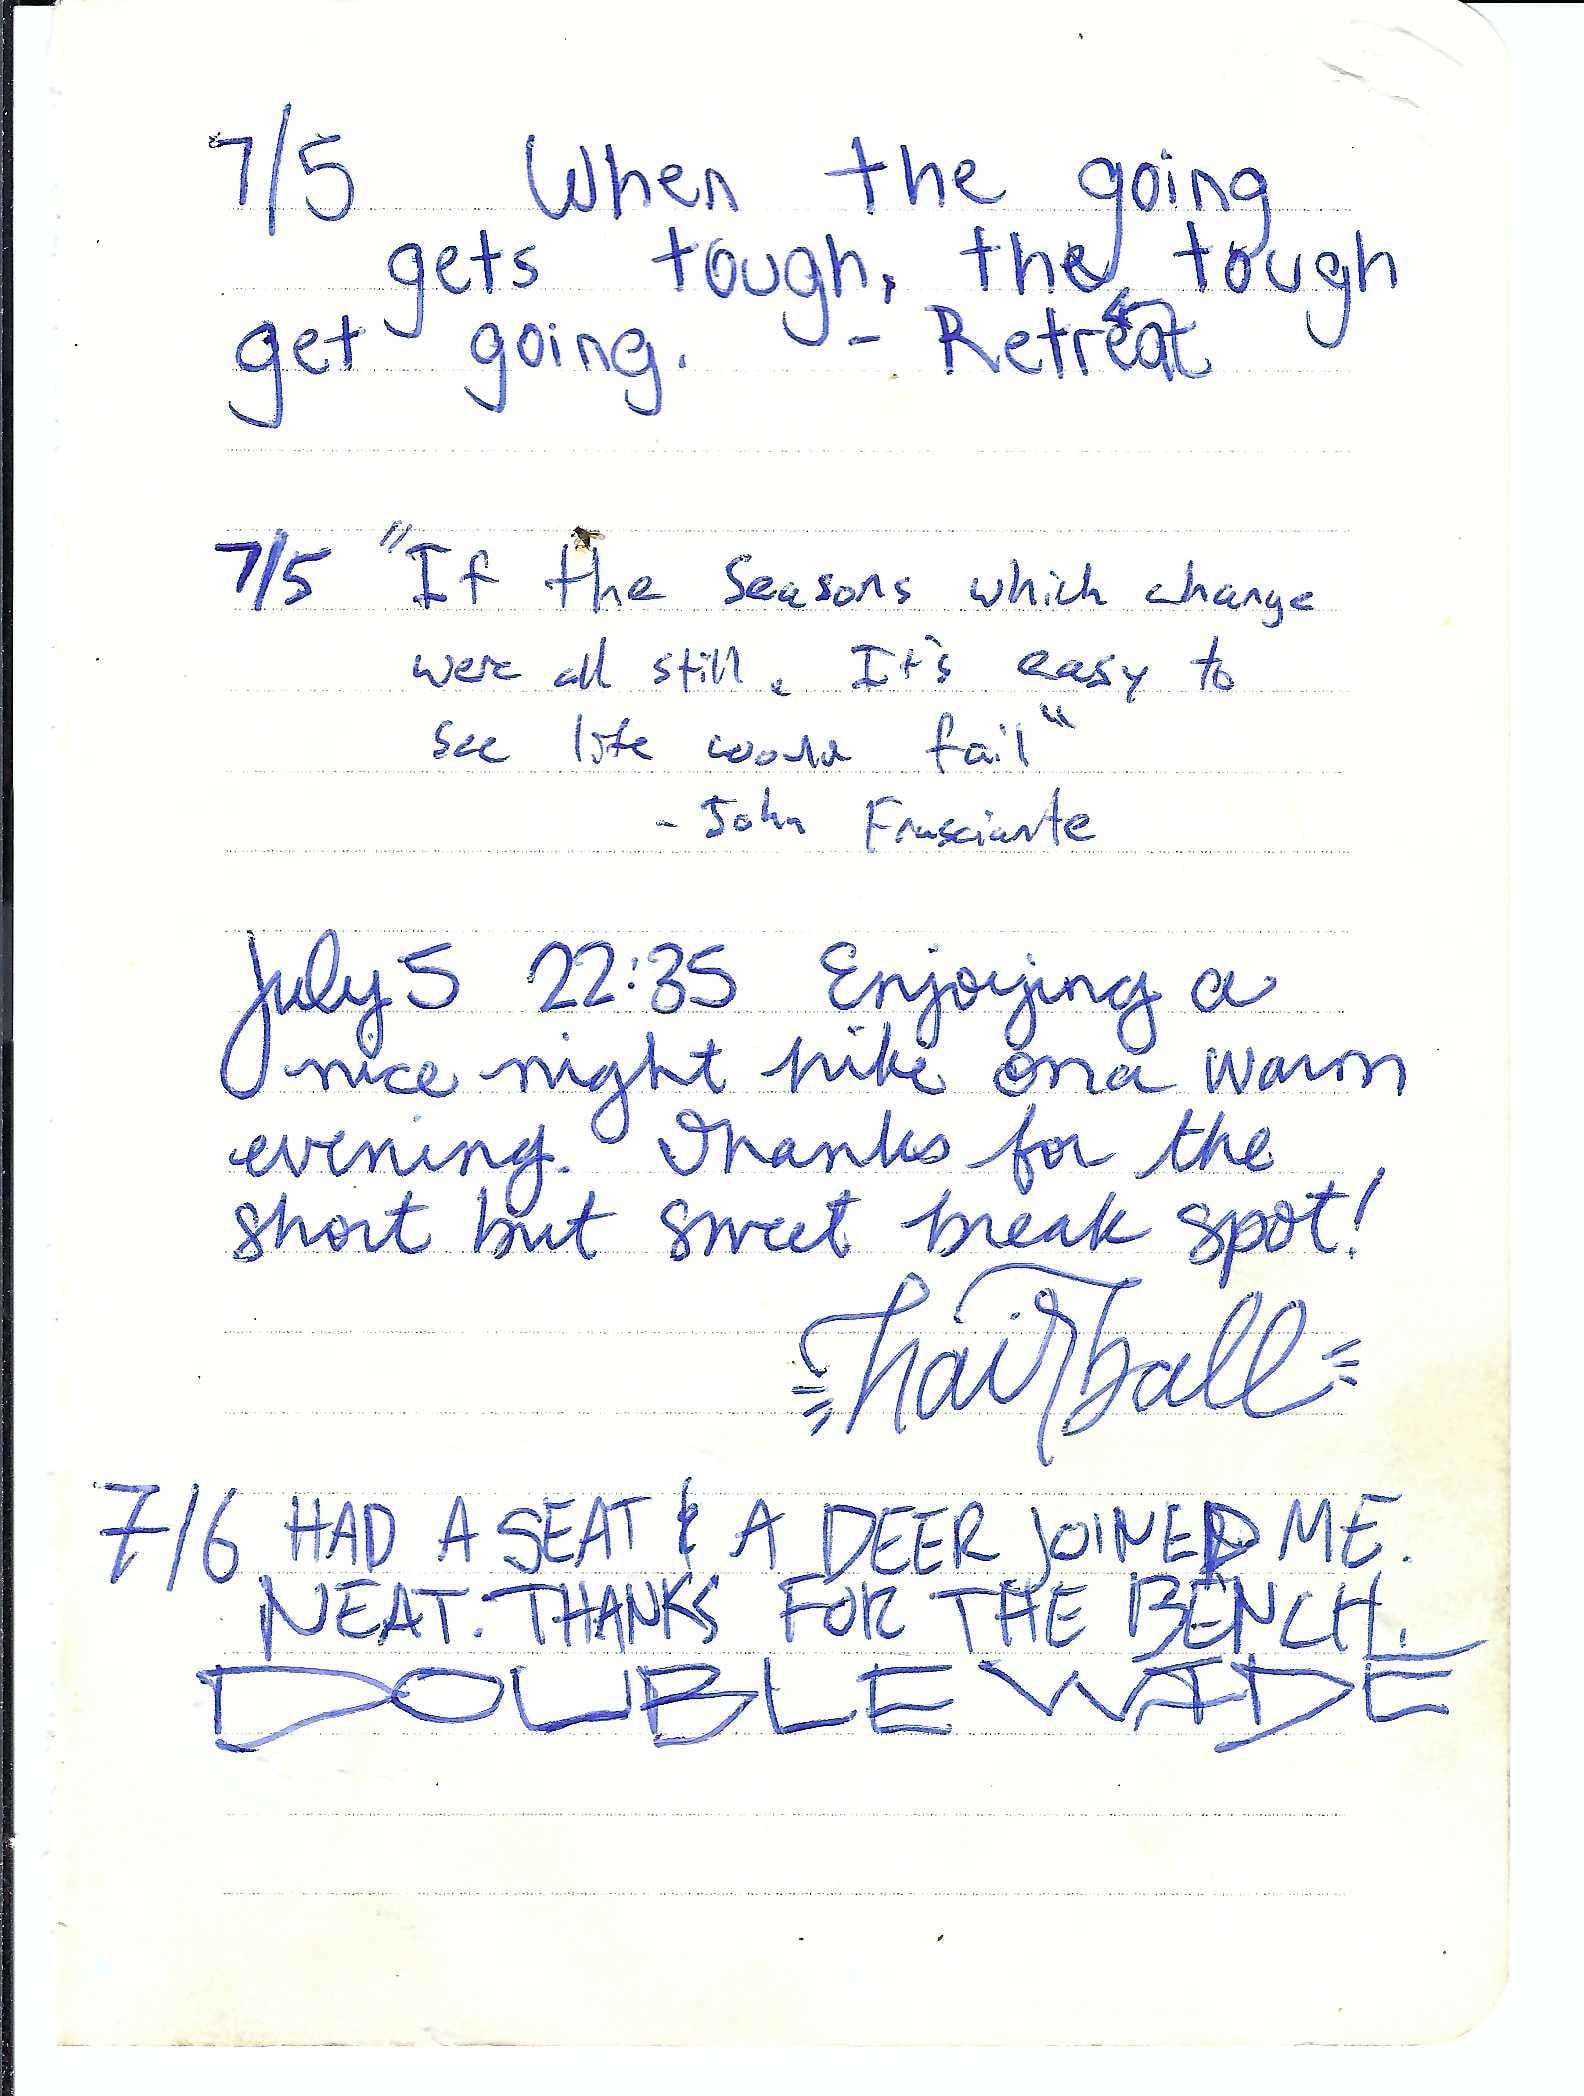 7/5 When the going
gets tough, the tough
get going. - Retreat
7/5 "If the seasons which change
were all still. It's easy to
see life would fail"
- John Frusciante
July 5 22:35 Enjoying a
nice night hike on a warm
evening. Thanks for the
short but sweet break spot!
hairball
7/6 HAD A SEAT & A DEER JOINED ME.
NEAT. THANKS FOR THE BENCH.
DOUBLE WIDE